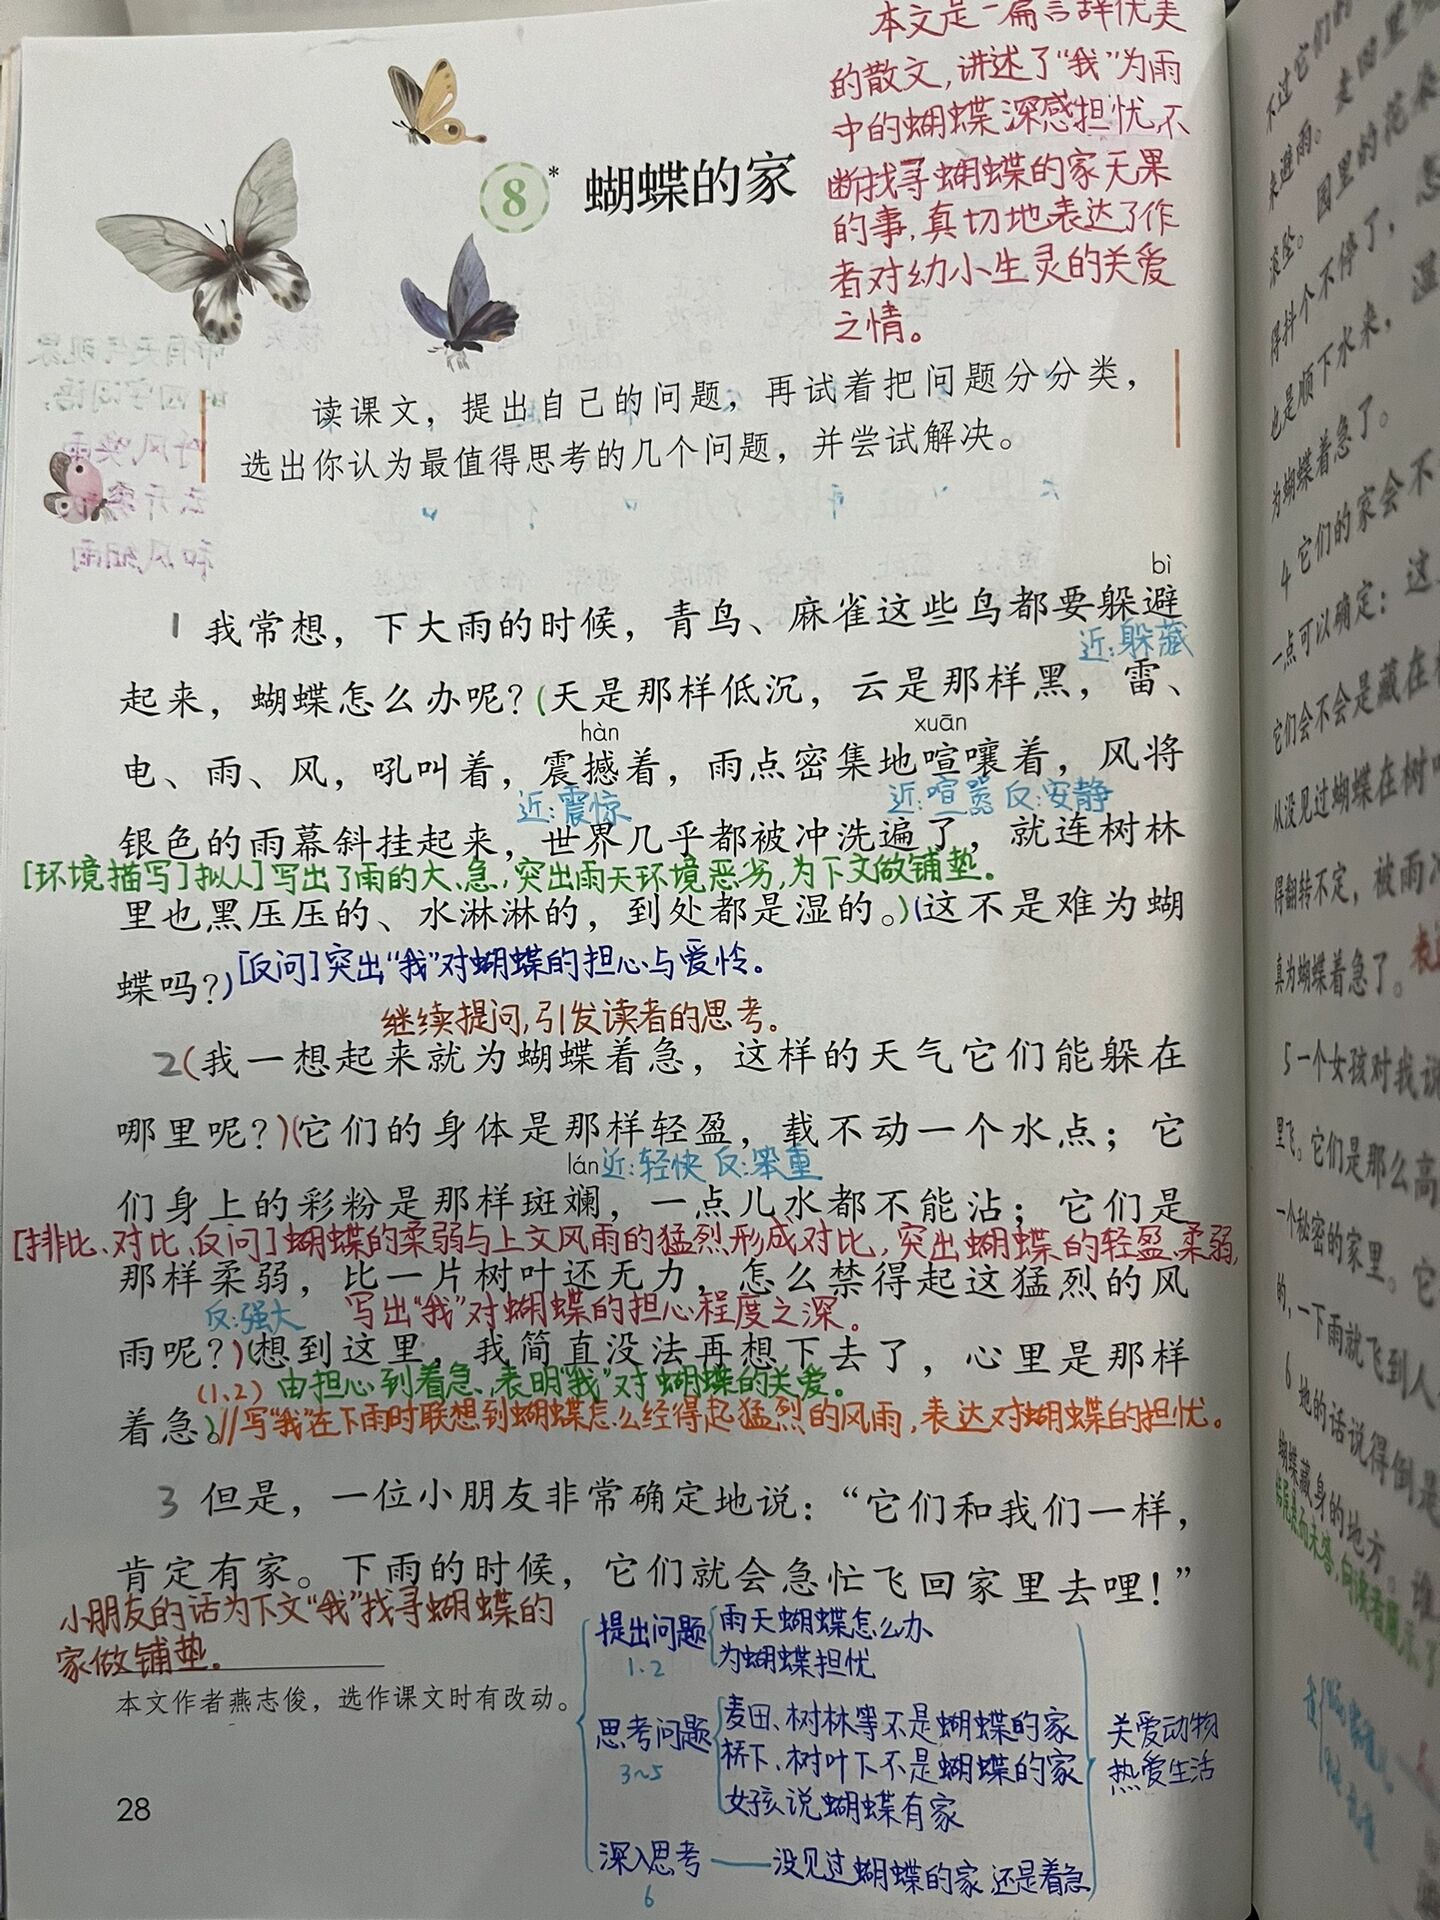 本文是一篇言辞优美
的散文,讲述了“我”为雨
中的蝴蝶深感担忧,不
断找寻蝴蝶的家无果
的事,真切地表达了作
者对幼小生灵的关爱
之情。
8* 蝴蝶的家
读课文，提出自己的问题，再试着把问题分分类，
选出你认为最值得思考的几个问题，并尝试解决。
bì
1 我常想，下大雨的时候，青鸟、麻雀这些鸟都要躲避
近:躲藏
起来，蝴蝶怎么办呢？(天是那样低沉，云是那样黑，雷、
hàn xuān
电、雨、风，吼叫着，震撼着，雨点密集地喧嚷着，风将
近:震惊 近:喧嚣 反:安静
银色的雨幕斜挂起来，世界几乎都被冲洗遍了，就连树林
[环境描写][拟人]写出了雨的大、急,突出雨天环境恶劣,为下文做铺垫。
里也黑压压的、水淋淋的，到处都是湿的。)(这不是难为蝴
蝶吗？)[反问]突出“我”对蝴蝶的担心与爱怜。
继续提问,引发读者的思考。
2(我一想起来就为蝴蝶着急，这样的天气它们能躲在
哪里呢？)(它们的身体是那样轻盈，载不动一个水点；它
lán 近:轻快 反:笨重
们身上的彩粉是那样斑斓，一点儿水都不能沾；它们是
[排比、对比、反问]蝴蝶的柔弱与上文风雨的猛烈形成对比,突出蝴蝶的轻盈、柔弱,
那样柔弱，比一片树叶还无力，怎么禁得起这猛烈的风
反:强大 写出“我”对蝴蝶的担心程度之深。
雨呢？)(想到这里，我简直没法再想下去了，心里是那样
(1、2) 由担心到着急,表明“我”对蝴蝶的关爱。
着急。//写“我”在下雨时联想到蝴蝶怎么经得起猛烈的风雨,表达对蝴蝶的担忧。
3 但是，一位小朋友非常确定地说：“它们和我们一样，
肯定有家。下雨的时候，它们就会急忙飞回家里去哩！”
小朋友的话为下文“我”找寻蝴蝶的
家做铺垫。
本文作者燕志俊，选作课文时有改动。
提出问题 雨天蝴蝶怎么办
1、2 为蝴蝶担忧
思考问题 麦田、树林等不是蝴蝶的家
3~5 桥下、树叶下不是蝴蝶的家
女孩说蝴蝶有家
深入思考——没见过蝴蝶的家,还是着急
6
关爱动物
热爱生活
28
来避雨。
园里的花
滚坠。
得抖个不停了，
也是顺下水来，
为蝴蝶着急了。
4 它们的家会不
一点可以确定：这
它们会不会是藏在
从没见过蝴蝶在树
得翻转不定，被雨
真为蝴蝶着急了。
5 一个女孩对我说
里飞。它们是那么高
一个秘密的家里。它
的，一下雨就飞到人
6 她的话说得倒是
蝴蝶藏身的地方。谁